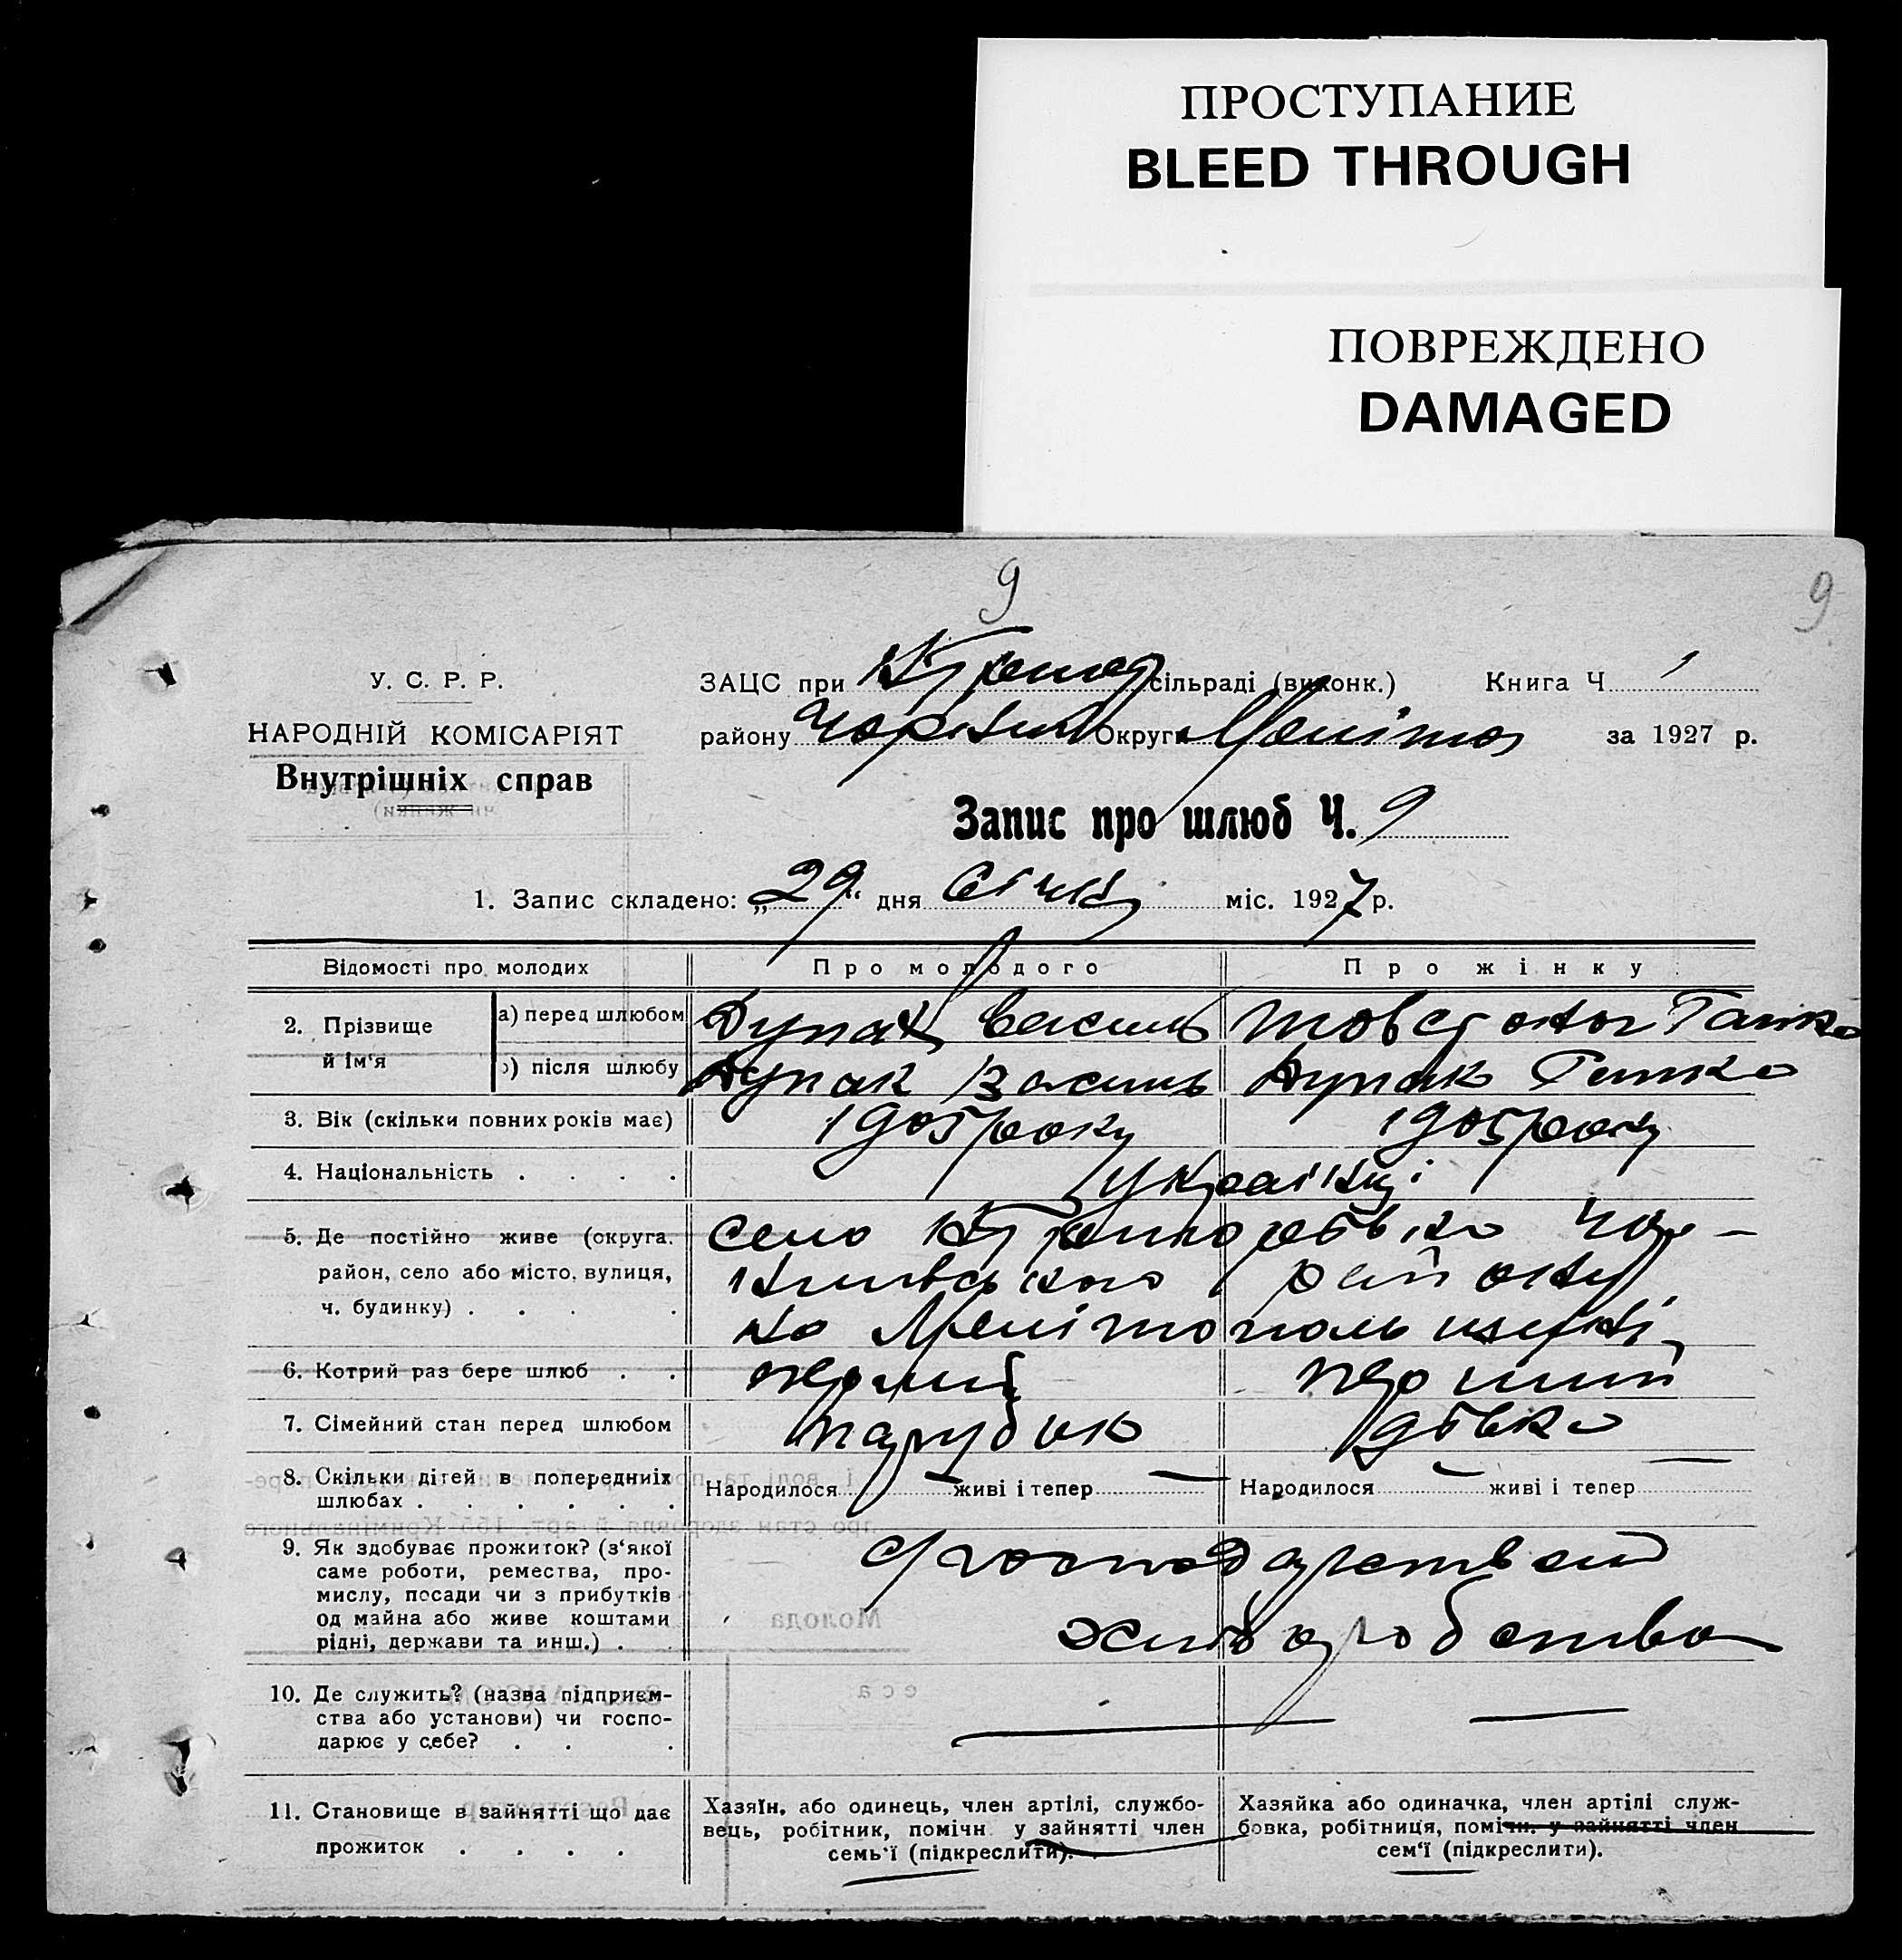 ПРОСТУПАНИЕ
BLEED THROUGH
ПОВРЕЖДЕНО
DAMAGED
9
9
У. С. Р. Р.
НАРОДНІЙ КОМІСАРІЯТ
Внутрішніх справ
ЗАЦС при сільраді (виконк.) Книга Ч 1
району Округи Меліто за 1927 р.
Запис про шлюб Ч. 9
1. Запис складено: „29“ дня Січня міс. 1927 р.
Відомості про молодих Про молодого Про жінку
2. Прізвище й ім'я
а) перед шлюбом Дупак Василь Товстоног Ганка
б) після шлюбу Дупак Василь Дупак Ганка
3. Вік (скільки повних років має) 1905 року 1905 року
4. Національність . . . . Українці
5. Де постійно живе (округа, село
район, село або місто, вулиця, району
ч. будинку) . . . . на Мелітопольщині
6. Котрий раз бере шлюб . . перший перший
7. Сімейний стан перед шлюбом парубок дівка
8. Скільки дітей в попередниіх
шлюбах . . . . . . . Народилося — живі і тепер — Народилося — живі і тепер —
9. Як здобуває прожиток? (з'якої
саме роботи, ремества, про-
мислу, посади чи з прибутків
од майна або живе коштами
рідні, держави та инш.) .
господарством
хліборобства
10. Де служить? (назва підприєм-
ства або установи) чи госпо-
дарює у себе? . . . — —
11. Становище в зайнятті що дає
прожиток . . . .
Хазяїн, або одинець, член артілі, службо-
вець, робітник, помічн у зайнятті член
семь'ї (підкреслити). .
Хазяйка або одиначка, член артілі служ-
бовка, робітниця, помічн. у зайнятті член
сем'ї (підкреслити).